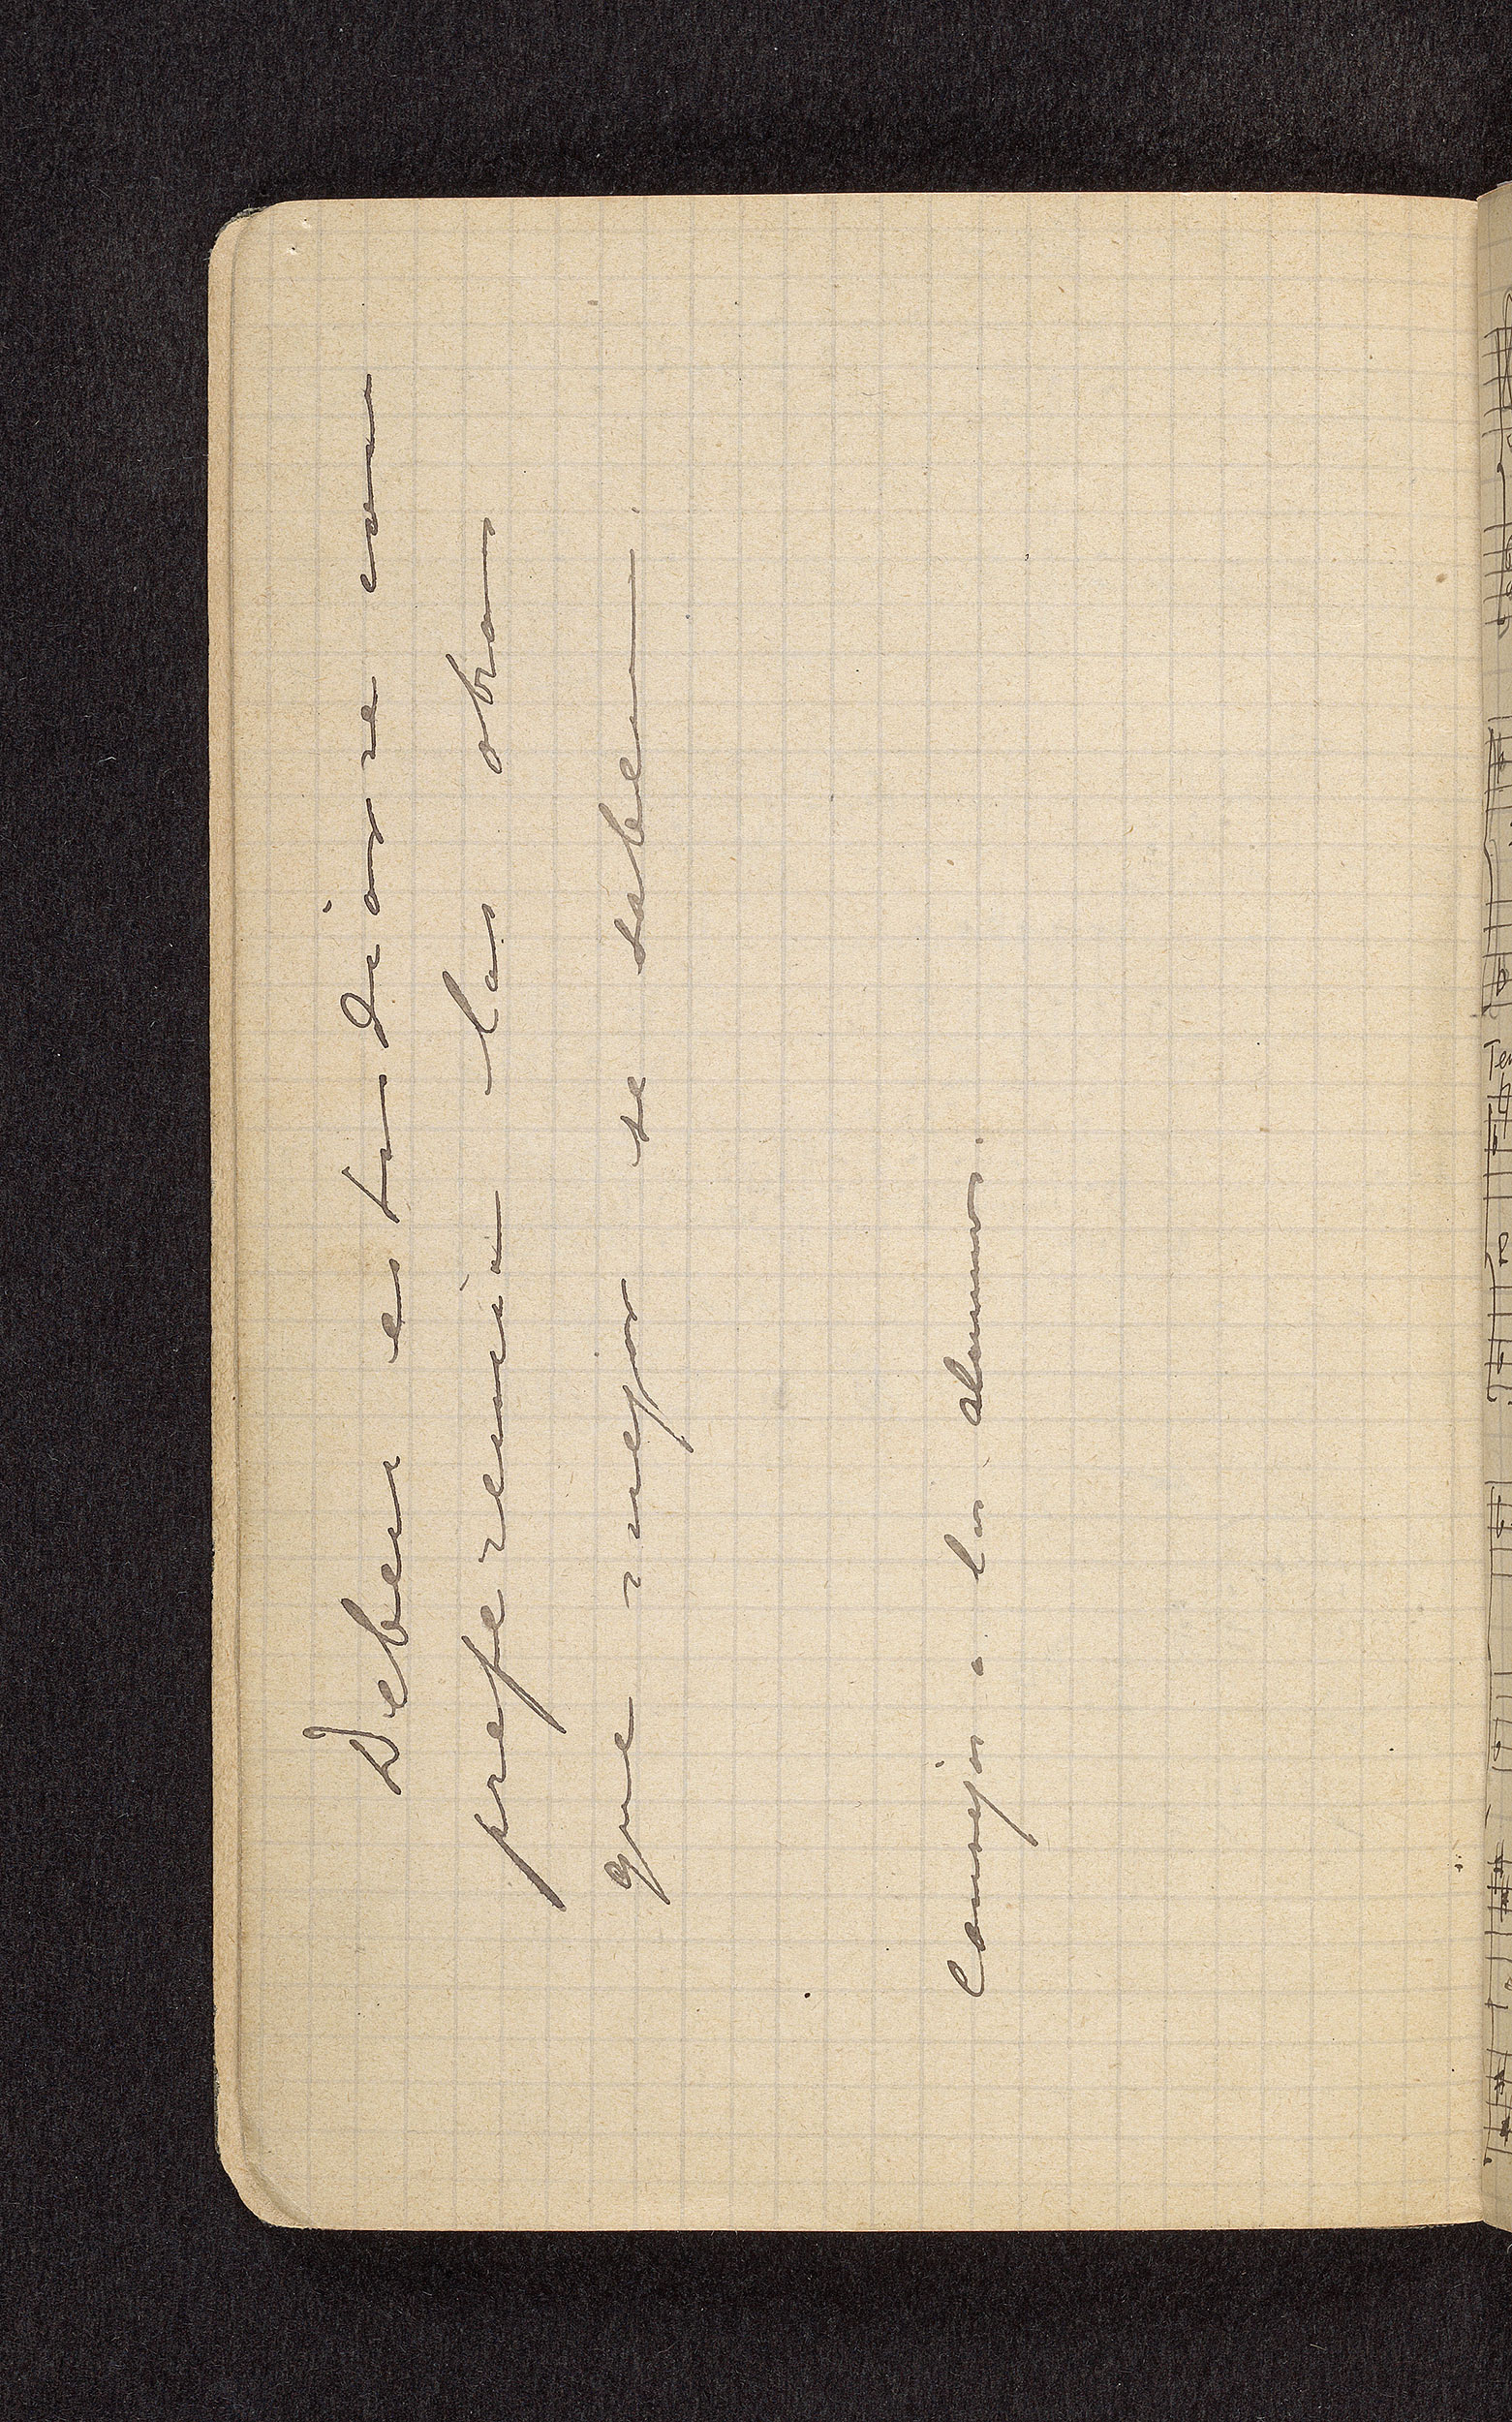 Deben estudiarse con
preferencia las obras
que mejor se saben.
Consejos a los alumnos.